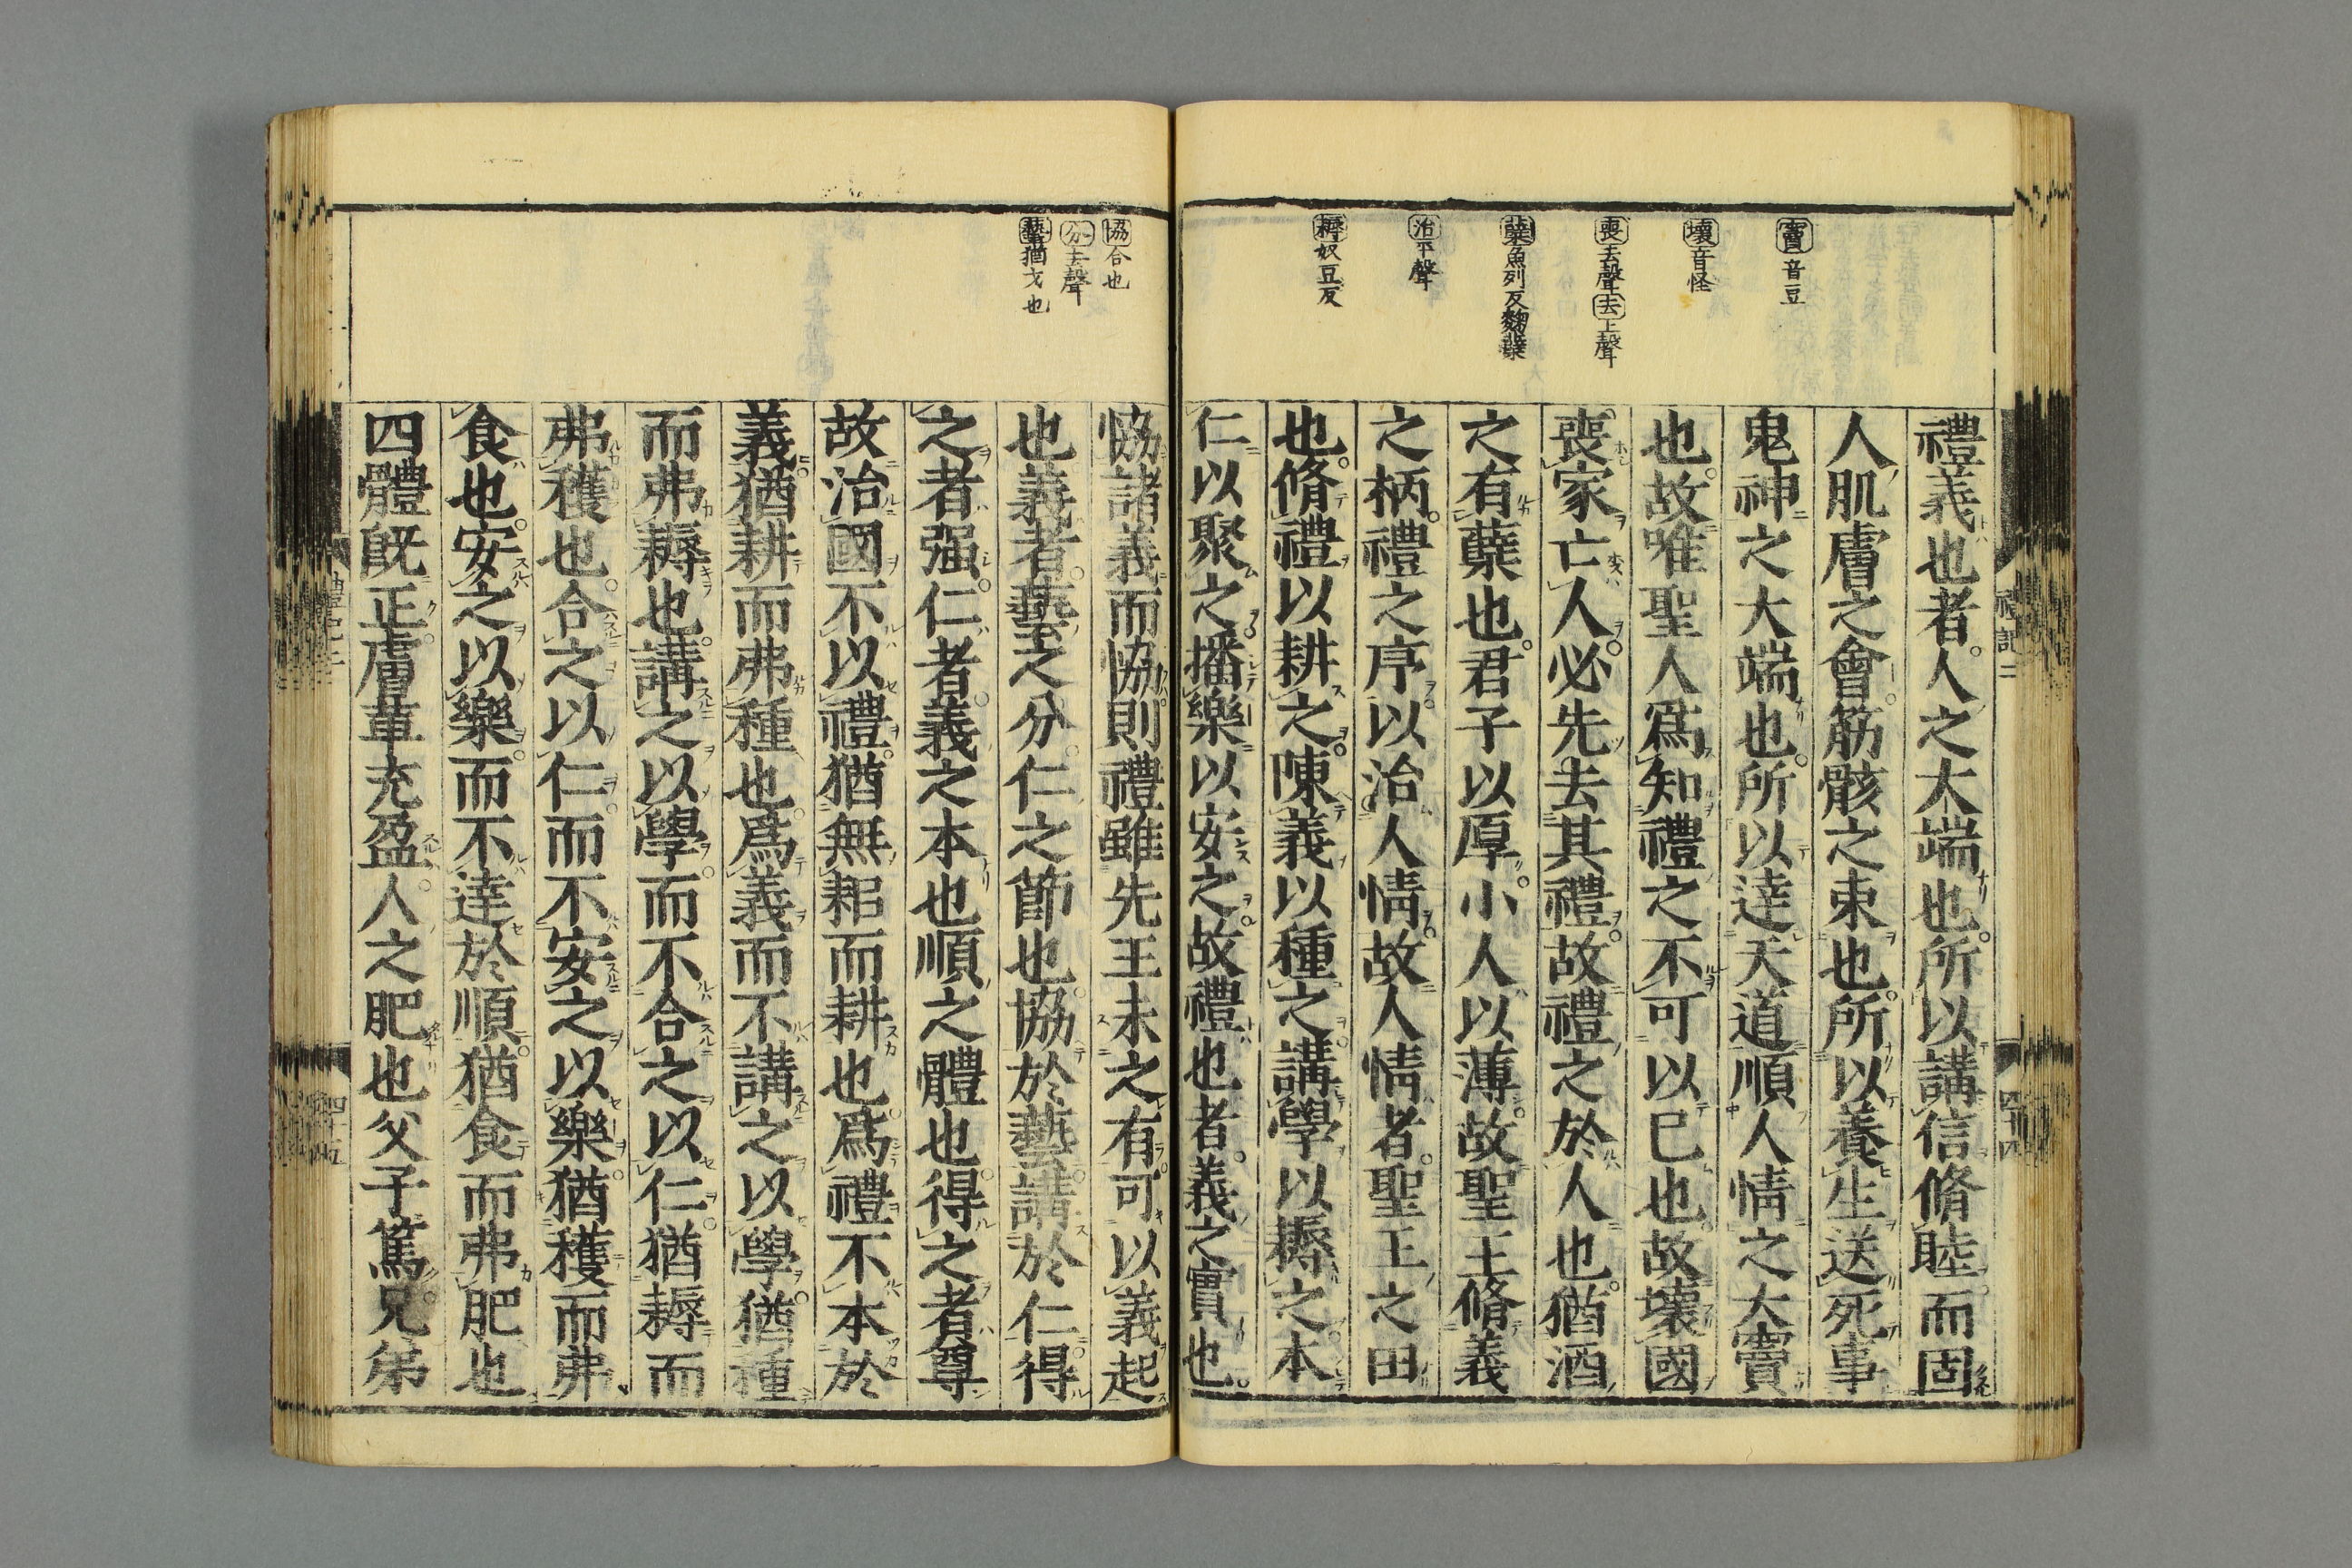 竇音豆
壞音怪
喪去聲去上聲
蘖魚列反麴蘖
治平聲
耨奴豆反
禮義也者人之大端也所以講信脩睦而固
人肌膚之會筋骸之束也所以養生送死事
鬼神之大端也所以達天道順人情之大竇
也故唯聖人爲知禮之不可以已也故壞國
喪家亡人必先去其禮故禮之於人也猶酒
之有蘖也君子以厚小人以薄故聖王脩義
之柄禮之序以治人情故人情者聖王之田
也脩禮以耕之陳義以種之講學以耨之本
仁以聚之播樂以安之故禮也者義之實也
協合也
分去聲
藝猶才也
協諸義而協則禮雖先王未之有可以義起
也義者藝之分仁之節也協於藝講於仁得
之者强仁者義之本也順之體也得之者尊
故治國不以禮猶無耜而耕也爲禮不本於
義猶耕而弗種也爲義而不講之以學猶種
而弗耨也講之以學而不合之以仁猶耨而
弗穫也合之以仁而不安之以樂猶穫而弗
食也安之以樂而不達於順猶食而弗肥也
四體既正膚革充盈人之肥也父子篤兄弟
禮記二
四十四
四十五